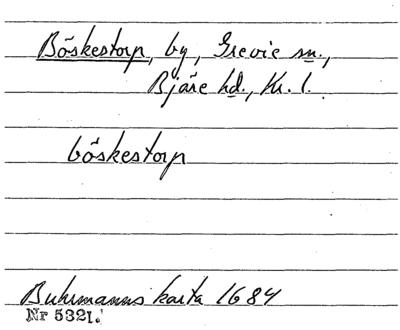 Böskestorp, by, Grevie sn.,
Bjäre hd., Kr. l.
böskestorp
Buhrmanns karta 1684
Nr 5321.